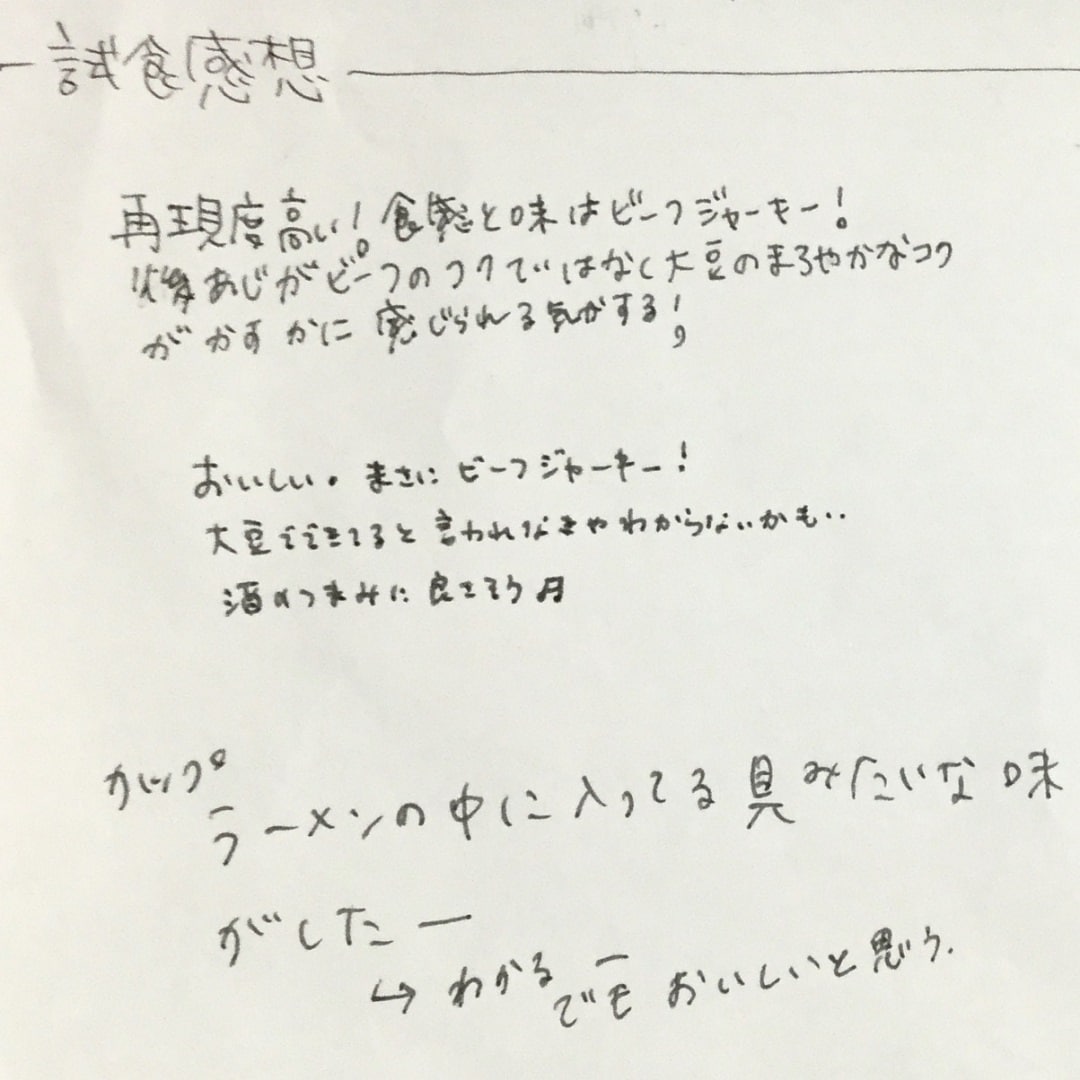 試食感想
再現度高い!食感と味はビーフジャーキー!
後あじがビーフのコクではなく大豆のまろやかなコク
がかすかに感じられる気がする!
おいしい。まさにビーフジャーキー!
大豆でできてると言われなきゃわからないかも..
酒のつまみに良さそう
カップ
ラーメンの中に入ってる具みたいな味
がしたー
→わかるー
でもおいしいと思う.